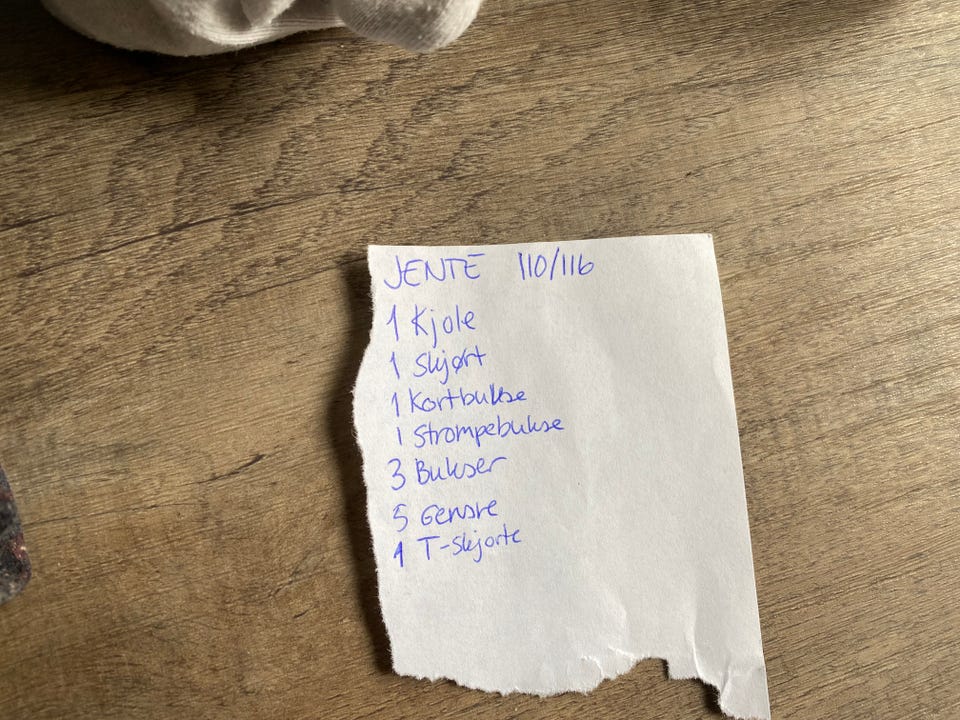 JENTE 110/116
1 Kjole
1 Skjørt
1 Kortbukse
1 Strømpebukse
3 Bukser
5 Gensre
1 T-skjorte